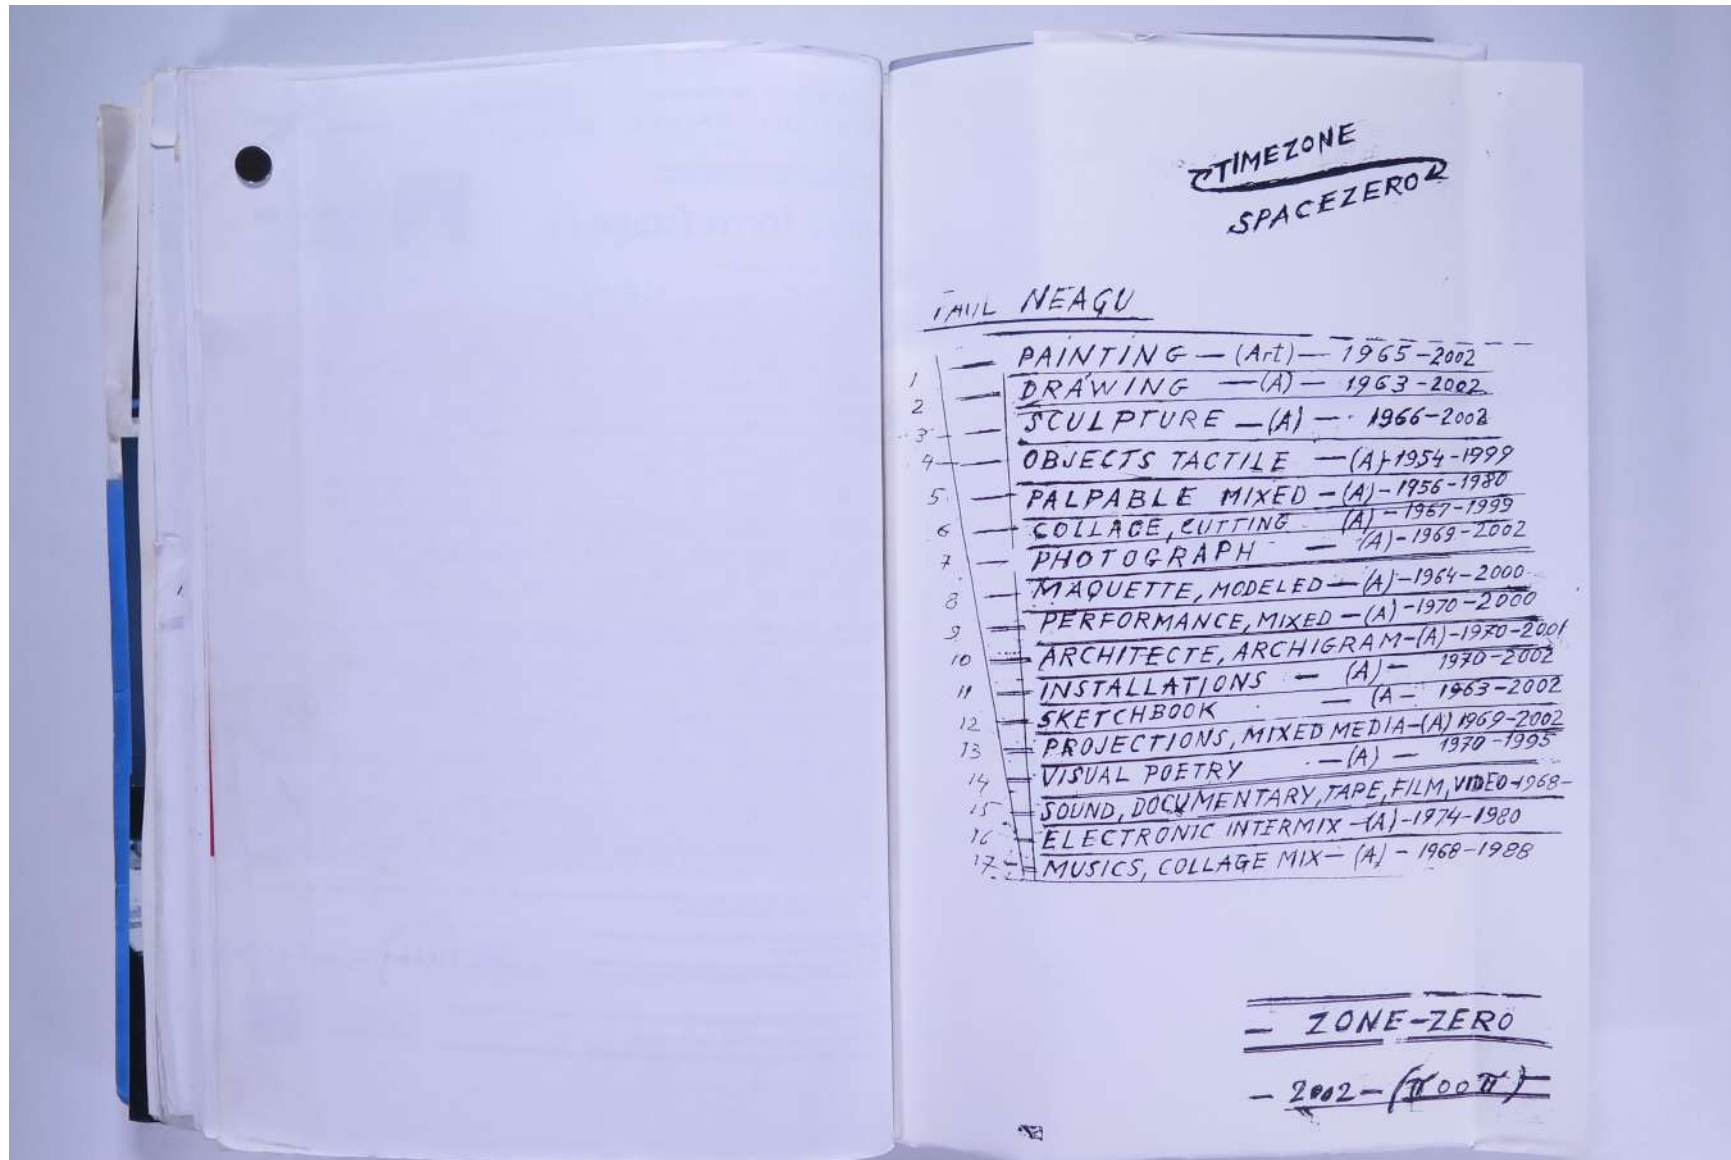 TIMEZONE
SPACEZERO
PAUL NEAGU
1 — PAINTING — (Art) — 1965-2002
2 — DRAWING — (A) — 1963-2002
3 — SCULPTURE — (A) — 1966-2002
4 — OBJECTS TACTILE — (A)-1954-1999
5 — PALPABLE MIXED — (A) — 1956-1980
6 — COLLAGE, CUTTING (A) — 1967-1999
7 — PHOTOGRAPH — (A)-1969-2002
8 — MAQUETTE, MODELED — (A)-1964-2000
9 — PERFORMANCE, MIXED — (A) -1970-2000
10 — ARCHITECTE, ARCHIGRAM-(A)-1970-2001
11 — INSTALLATIONS — (A) — 1970-2002
12 — SKETCHBOOK — (A — 1963-2002
13 — PROJECTIONS, MIXED MEDIA-(A) 1969-2002
14 — VISUAL POETRY — (A) — 1970-1995
15 — SOUND, DOCUMENTARY, TAPE, FILM, VIDEO-1968-
16 — ELECTRONIC INTERMIX -(A)-1974-1980
17 — MUSICS, COLLAGE MIX — (A) — 1968-1988
— ZONE-ZERO
— 2002 — (π00π)